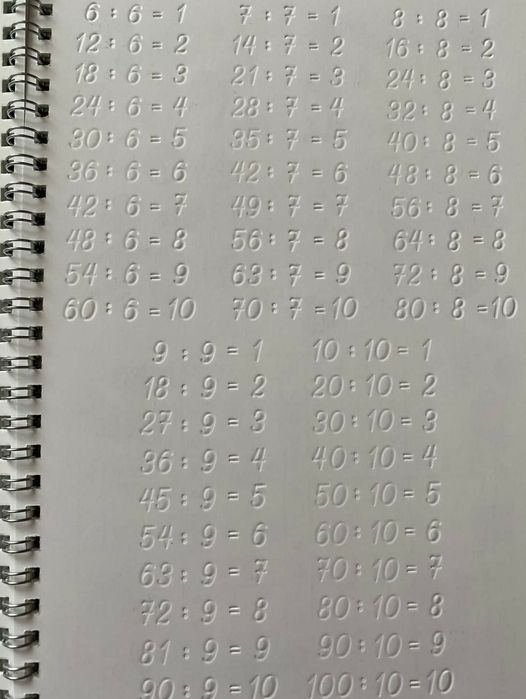 6 : 6 = 1 7 : 7 = 1 8 : 8 = 1
12 : 6 = 2 14 : 7 = 2 16 : 8 = 2
18 : 6 = 3 21 : 7 = 3 24 : 8 = 3
24 : 6 = 4 28 : 7 = 4 32 : 8 = 4
30 : 6 = 5 35 : 7 = 5 40 : 8 = 5
36 : 6 = 6 42 : 7 = 6 48 : 8 = 6
42 : 6 = 7 49 : 7 = 7 56 : 8 = 7
48 : 6 = 8 56 : 7 = 8 64 : 8 = 8
54 : 6 = 9 63 : 7 = 9 72 : 8 = 9
60 : 6 = 10 70 : 7 = 10 80 : 8 = 10
9 : 9 = 1 10 : 10 = 1
18 : 9 = 2 20 : 10 = 2
27 : 9 = 3 30 : 10 = 3
36 : 9 = 4 40 : 10 = 4
45 : 9 = 5 50 : 10 = 5
54 : 9 = 6 60 : 10 = 6
63 : 9 = 7 70 : 10 = 7
72 : 9 = 8 80 : 10 = 8
81 : 9 = 9 90 : 10 = 9
90 : 9 = 10 100 : 10 = 10